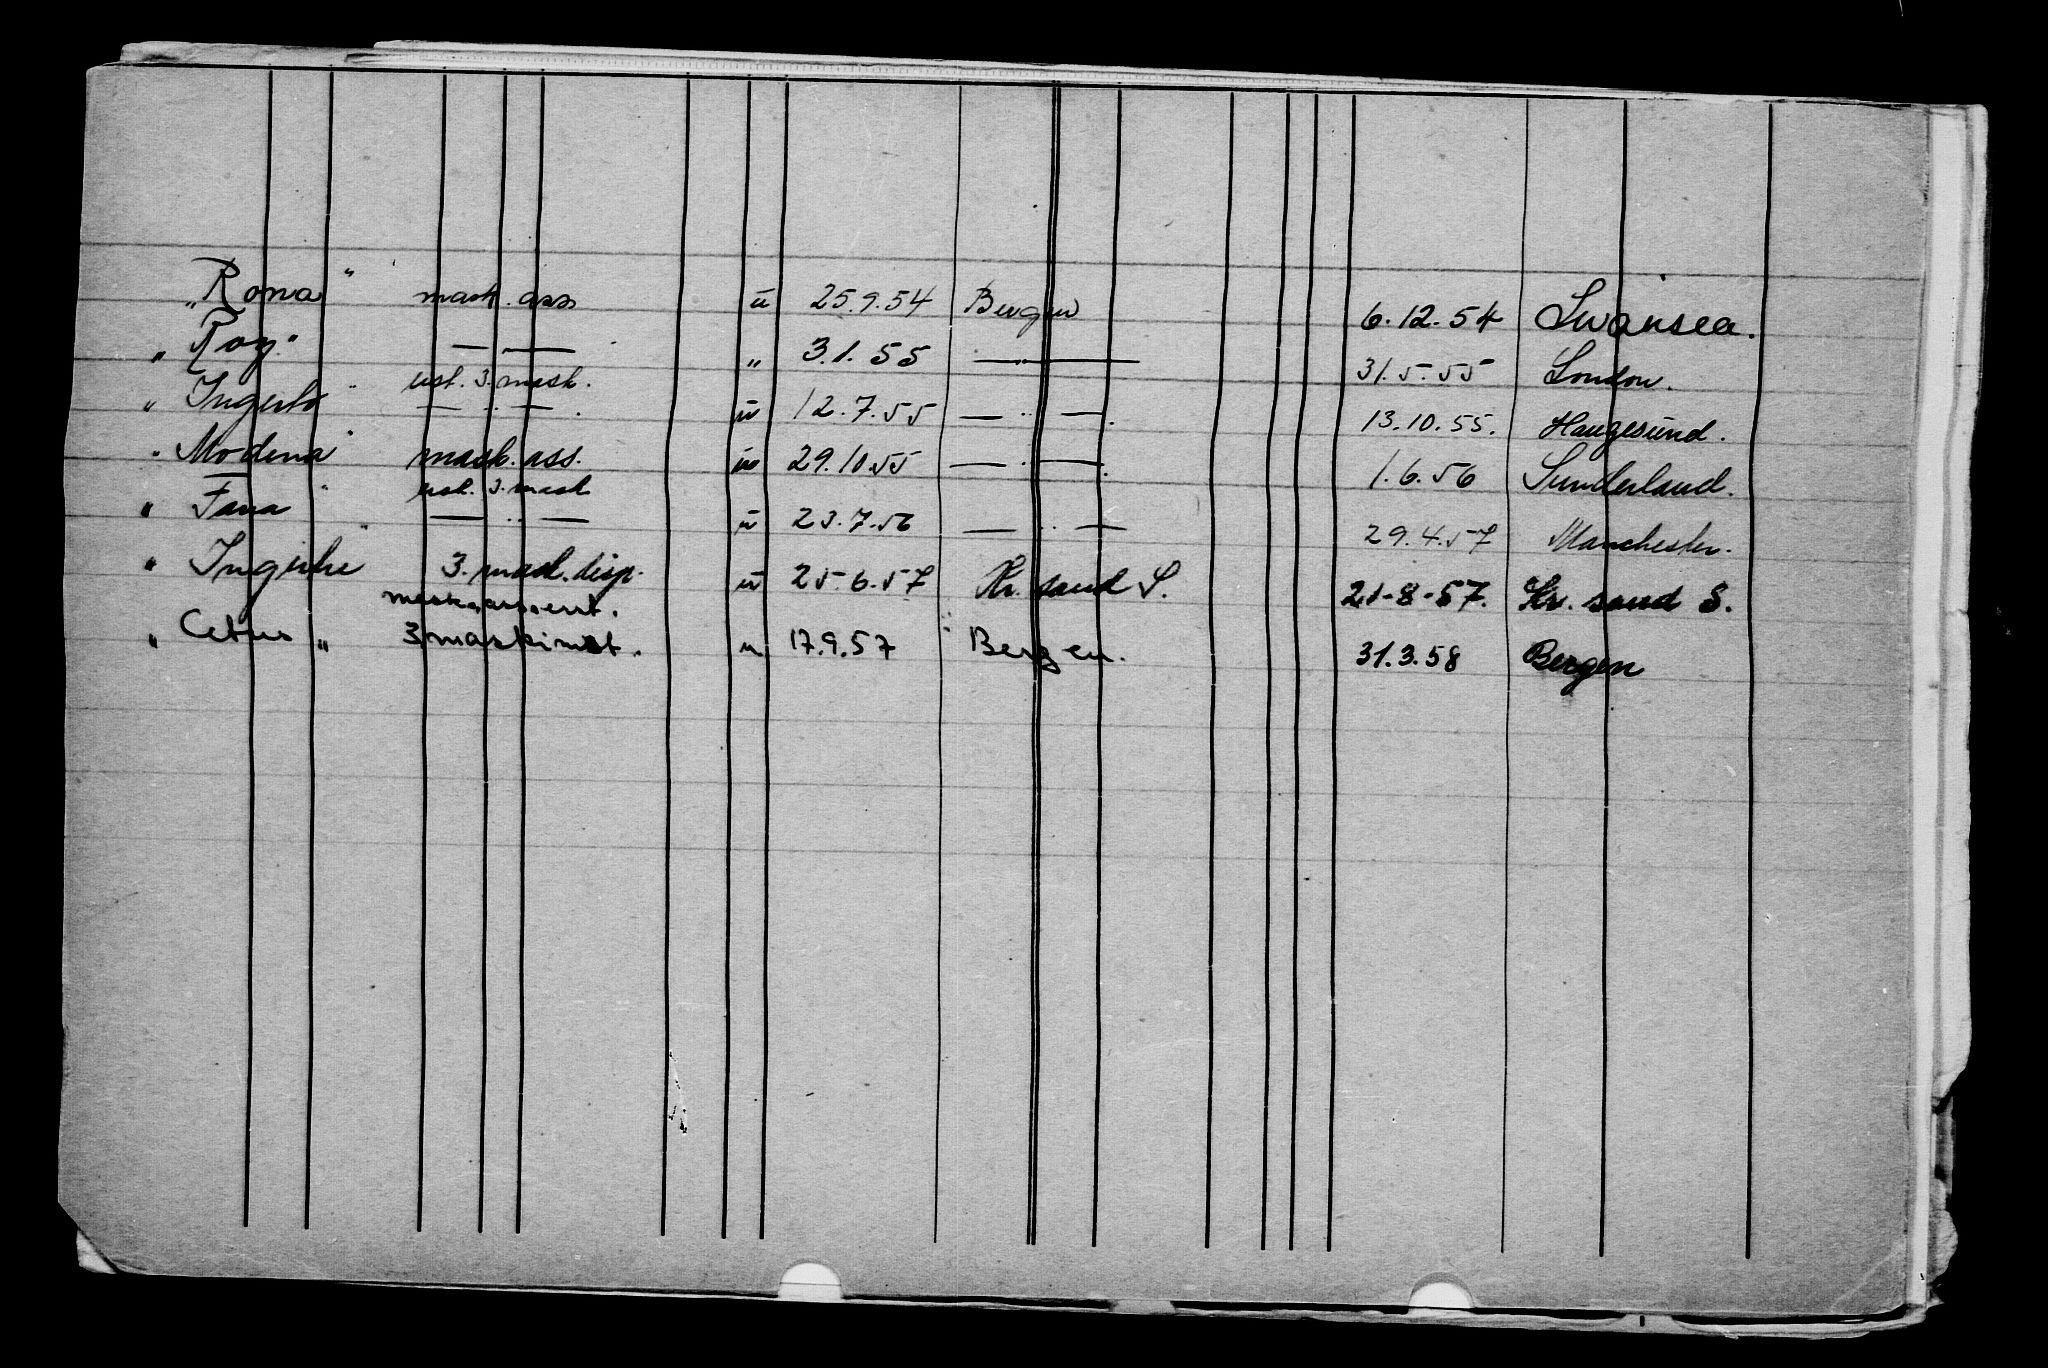 "Roma" mask. ass ü 25.9.54 Bergen 6.12.54 Swansea.
" Roy" — — " 3.1.55 — — 31.5.55 London.
ust. 3. mask.
" Ingerto " — " — . ü 12.7.55 — " — . 13.10.55. Haugesund.
" Modena " mask. ass. ü 29.10.55 — " — . 1.6.56 Sunderland.
ust. 3. mask
" Fana " — " — ü 23.7.56 — " — 29.4.57 Manchester.
" " 3. mask. disp. ü 25.6.57 Kr. sand S. 21-8-57. Kr. sand S.
mask.ass.
" Cetus " 3 maskinist. u. 17.9.57 Bergen. 31.3.58 Bergen